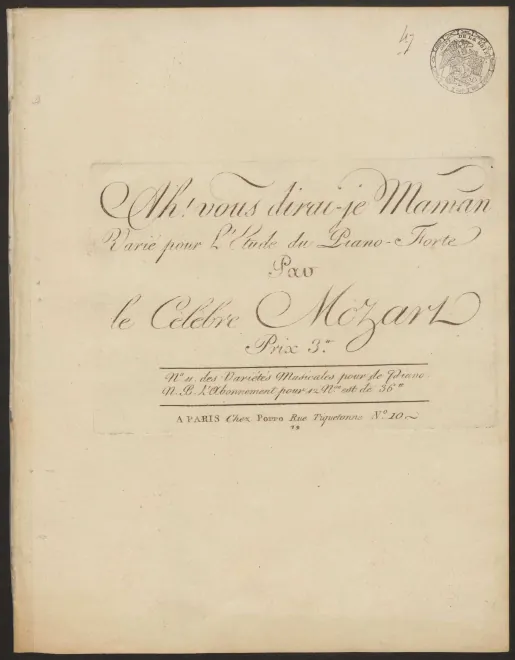 47
Ah! vous dirai-je Maman
Varié pour L'Etude du Piano-Forte
Par
le Célébre Mozart
Prix 3.tt
N.o 11. des Variétés Musicales pour de Piano.
N. B. L'Abonnement pour 12 N.ros est de 36.tt
A PARIS Chez Porro Rue Tiquetonne N.o 10